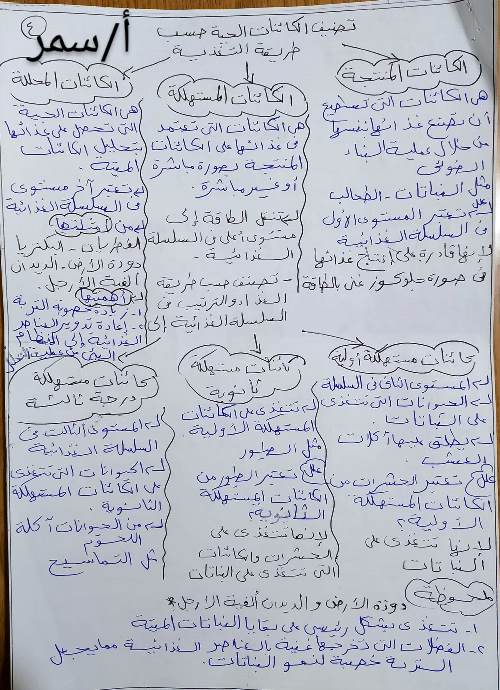 ٤
أ/سمر
تصنيف الكائنات الحية حسب
طريقة التغذية
الكائنات المنتجة
هى الكائنات التى تستطيع
أن تصنع غذائها بنفسها
من خلال عملية البناء
الضوئى
مثل النباتات - الطحالب
علل تعتبر المستوى الأول
فى السلسلة الغذائية
لإنها قادرة على إنتاج غذائها
فى صورة جلوكوز غنى بالطاقة
الكائنات المستهلكة
هى الكائنات التى تعتمد
فى غذائها على الكائنات
المنتجة بصورة مباشرة
أو غير مباشرة.
تنتقل الطاقة إلى
مستوى أعلى فى السلسلة
الغذائية.
- تصنف حسب طريقة
الغذاء والترتيب فى
السلسلة الغذائية إلى
الكائنات المحللة
هى الكائنات الحية
التى تحصل على غذائها
بتحليل الكائنات
الميتة.
تعتبر آخر مستوى
فى السلسلة الغذائية
من أمثلتها
الفطريات - البكتريا
دودة الأرض - الديدان
ألفية الأرجل.
أهميتها
١- زيادة خصوبة التربة
٢- إعادة تدوير العناصر
الغذائية إلى النظام
البيئى من
كائنات مستهلكة أولية
المستوى الثانى فى السلسلة
الحيوانات التى تتغذى
على النباتات.
يطلق عليها آكلات
العشب.
علل تعتبر الحشرات من
الكائنات المستهلكة
الأولية؟
لإنها تتغذى على
النباتات
كائنات مستهلكة
ثانوية
تتغذى على الكائنات
المستهلكة الأولية.
مثل الطيور
علل تعتبر الطيور من
الكائنات المستهلكة
الثانوية؟
لإنها تتغذى على
الحشرات والكائنات
التى تتغذى على النباتات
كائنات مستهلكة
درجة ثالثة
المستوى الثالث فى
السلسلة الغذائية
الحيوانات التى تتغذى
على الكائنات المستهلكة
الثانوية.
من الحيوانات آكلة
اللحوم
مثل التماسيح
ملحوظة
دودة الأرض والديدان ألفية الأرجل *
١- تتغذى بشكل رئيسى على بقايا النباتات الميتة
٢- الفضلات التى تخرجها غنية بالعناصر الغذائية مما يجعل
التربة خصبة لنمو النباتات.